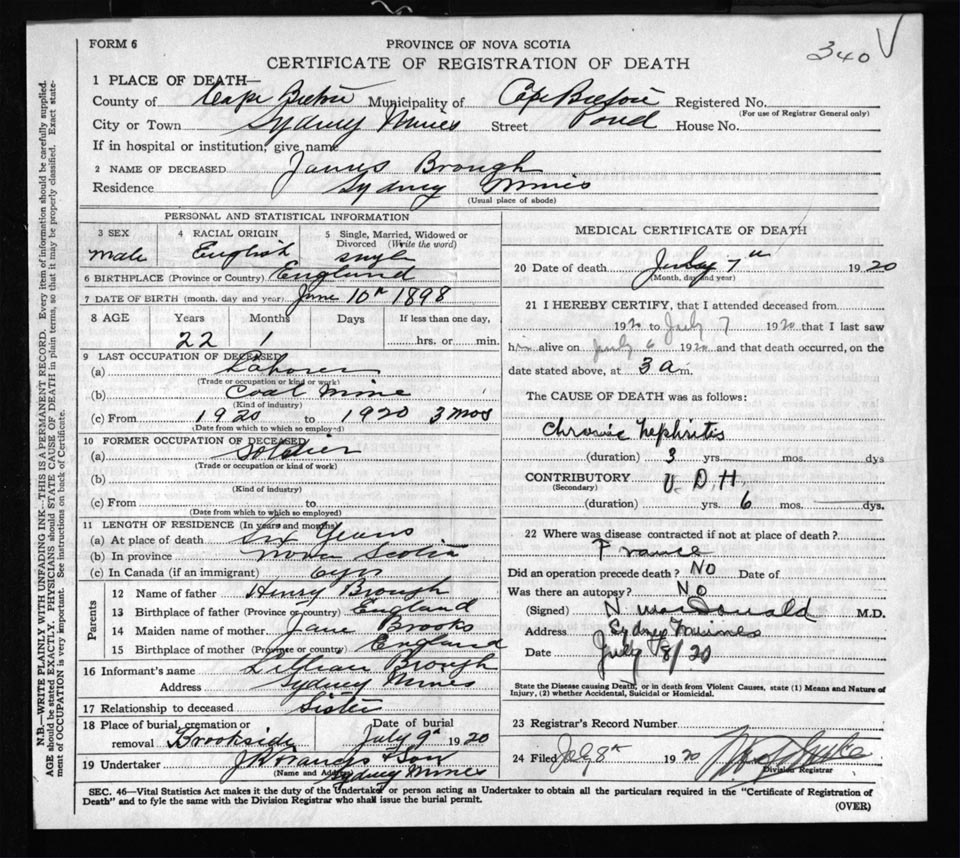 FORM 6
PROVINCE OF NOVA SCOTIA
340
CERTIFICATE OF REGISTRATION OF DEATH
1 PLACE OF DEATH—
County of Cape Breton Municipality of Cape Breton Registered No.
(For use of Registrar General only)
City or Town Sydney Mines Street Pond House No.
If in hospital or institution, give name
2 NAME OF DECEASED James Brough
Residence Sydney Mines
(Usual place of abode)
PERSONAL AND STATISTICAL INFORMATION
3 SEX male
4 RACIAL ORIGIN English
5 Single, Married, Widowed or Divorced (Write the word) single
6 BIRTHPLACE (Province or Country) England
7 DATE OF BIRTH (month, day and year) June 10th 1898
8 AGE Years Months Days If less than one day,
22 1 hrs. or min.
9 LAST OCCUPATION OF DECEASED
(a) Laborer
(Trade or occupation or kind of work)
(b) Coal Mine
(Kind of industry)
(c) From 1920 to 1920 3 mos
(Date from which to which so employed)
10 FORMER OCCUPATION OF DECEASED
(a) Soldier
(Trade or occupation or kind of work)
(b)
(Kind of industry)
(c) From to
(Date from which to which so employed)
11 LENGTH OF RESIDENCE (In years and months)
(a) At place of death Six Years
(b) In province Nova Scotia
(c) In Canada (if an immigrant) 6 yrs
Parents
12 Name of father Henry Brough
13 Birthplace of father (Province or country) England
14 Maiden name of mother Jane Brooks
15 Birthplace of mother (Province or country) England
16 Informant's name Lillian Brough
Address Sydney Mines
17 Relationship to deceased Sister
18 Place of burial, cremation or removal Brookside
Date of burial July 9th 1920
19 Undertaker J R Francis & Son
(Name and Address) Sydney Mines
MEDICAL CERTIFICATE OF DEATH
20 Date of death July 7th 1920
(Month, day and year)
21 I HEREBY CERTIFY, that I attended deceased from
1920 to July 7 1920 that I last saw
him alive on July 6 1920 and that death occurred, on the
date stated above, at 3 a m.
The CAUSE OF DEATH was as follows:
Chronic Nephritis
(duration) 3 yrs. mos. dys
CONTRIBUTORY V. D. H.
(Secondary)
(duration) yrs. 6 mos. dys
22 Where was disease contracted if not at place of death?
France
Did an operation precede death? NO Date of
Was there an autopsy? NO
(Signed) N MacDonald M.D.
Address Sydney Mines
Date July 8/20
State the Disease causing Death, or in death from Violent Causes, state (1) Means and Nature of
Injury, (2) whether Accidental, Suicidal or Homicidal.
23 Registrar's Record Number
24 Filed July 8th 1920
Division Registrar
SEC. 46—Vital Statistics Act makes it the duty of the Undertaker or person acting as Undertaker to obtain all the particulars required in the "Certificate of Registration of
Death" and to fyle the same with the Division Registrar who shall issue the burial permit.
(OVER)
N.B.—WRITE PLAINLY WITH UNFADING INK—THIS IS A PERMANENT RECORD. Every item of information should be carefully supplied.
AGE should be stated EXACTLY. PHYSICIANS should STATE CAUSE OF DEATH in plain terms, so that it may be properly classified. Exact state-
ment of OCCUPATION is very important. See instructions on back of Certificate.